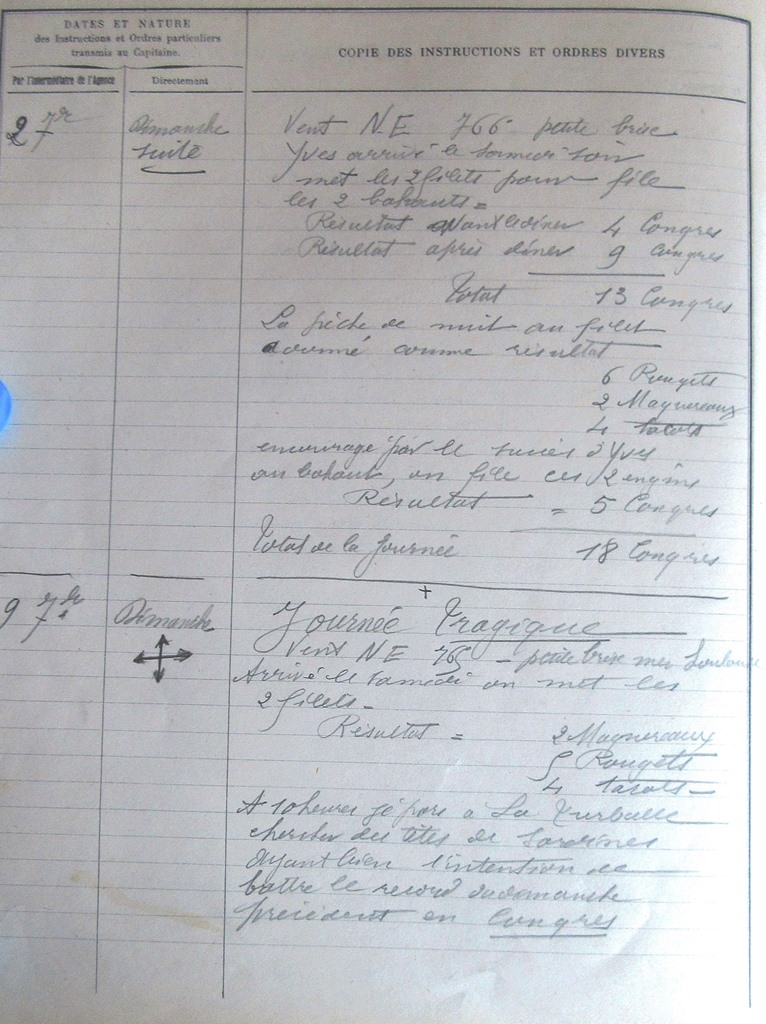 DATES ET NATURE
des Instructions et Ordres particuliers
transmis au Capitaine.
COPIE DES INSTRUCTIONS ET ORDRES DIVERS
Par l'intermédiaire de l'Agence
Directement
2 7re Dimanche Vent NE 766 petite brise
suite Yves arrivé le samedi soir
met les 2 filets pour file
les 2 bahauts =
Résultat avant le diner 4 Congres
Résultat après diner 9 Congres
Total 13 Congres
La pêche de nuit au filet
donné comme résultat
6 Rougets
2 Maquereaux
4 tacots
encouragé par le succès d'Yves
au bahaut, on file ces 2 engins
Résultat = 5 Congres
Total de la Journée 18 Congres
9 7re Dimanche Journée Tragique
Vent NE 765 - petite brise mer
Arrivé le samedi on met les
2 filets -
Résultat = 2 Maquereaux
5 Rougets
4 tacots -
A 10 heures je pars a La Turballe
chercher des têtes de Sardines
Ayant bien l'intention de
battre le record du dimanche
précédent en Congres